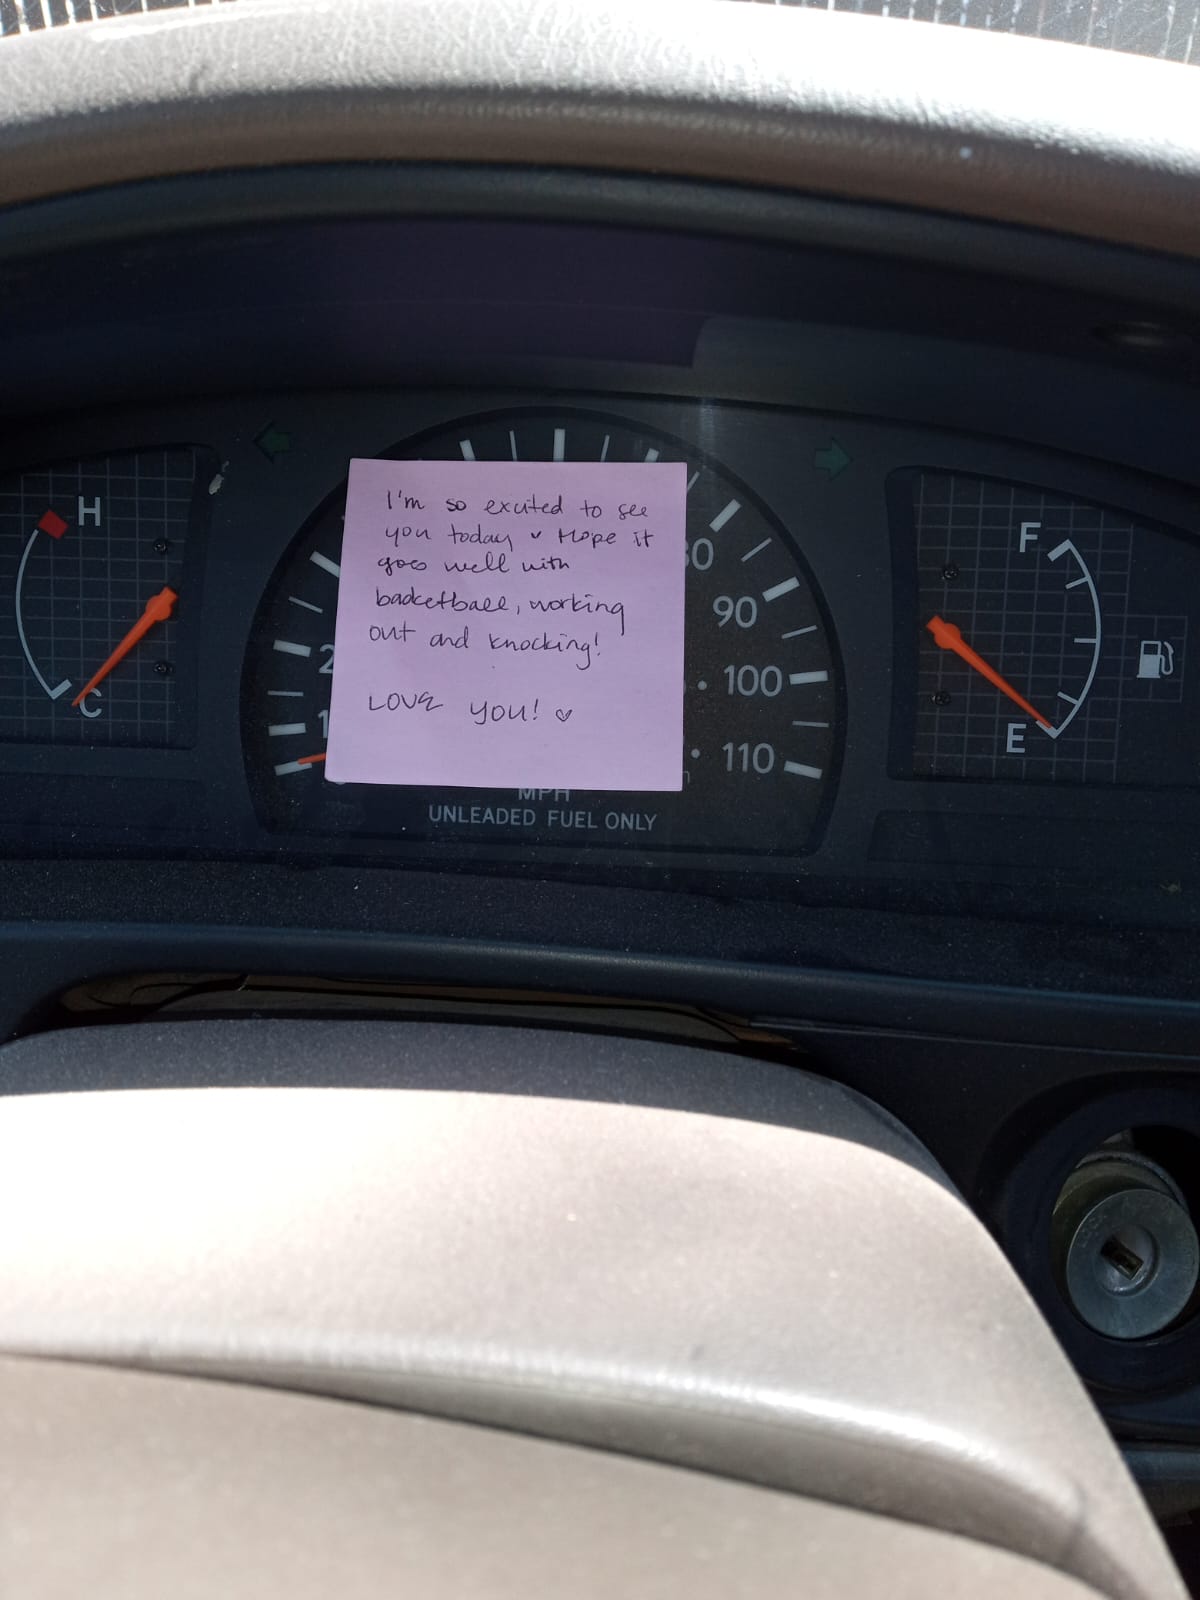 H
C
I'm so excited to see
you today ♥ Hope it
goes well with
basketball, working
out and knocking!
LOVE YOU! ♡
90
100
110
MPH
UNLEADED FUEL ONLY
F
E